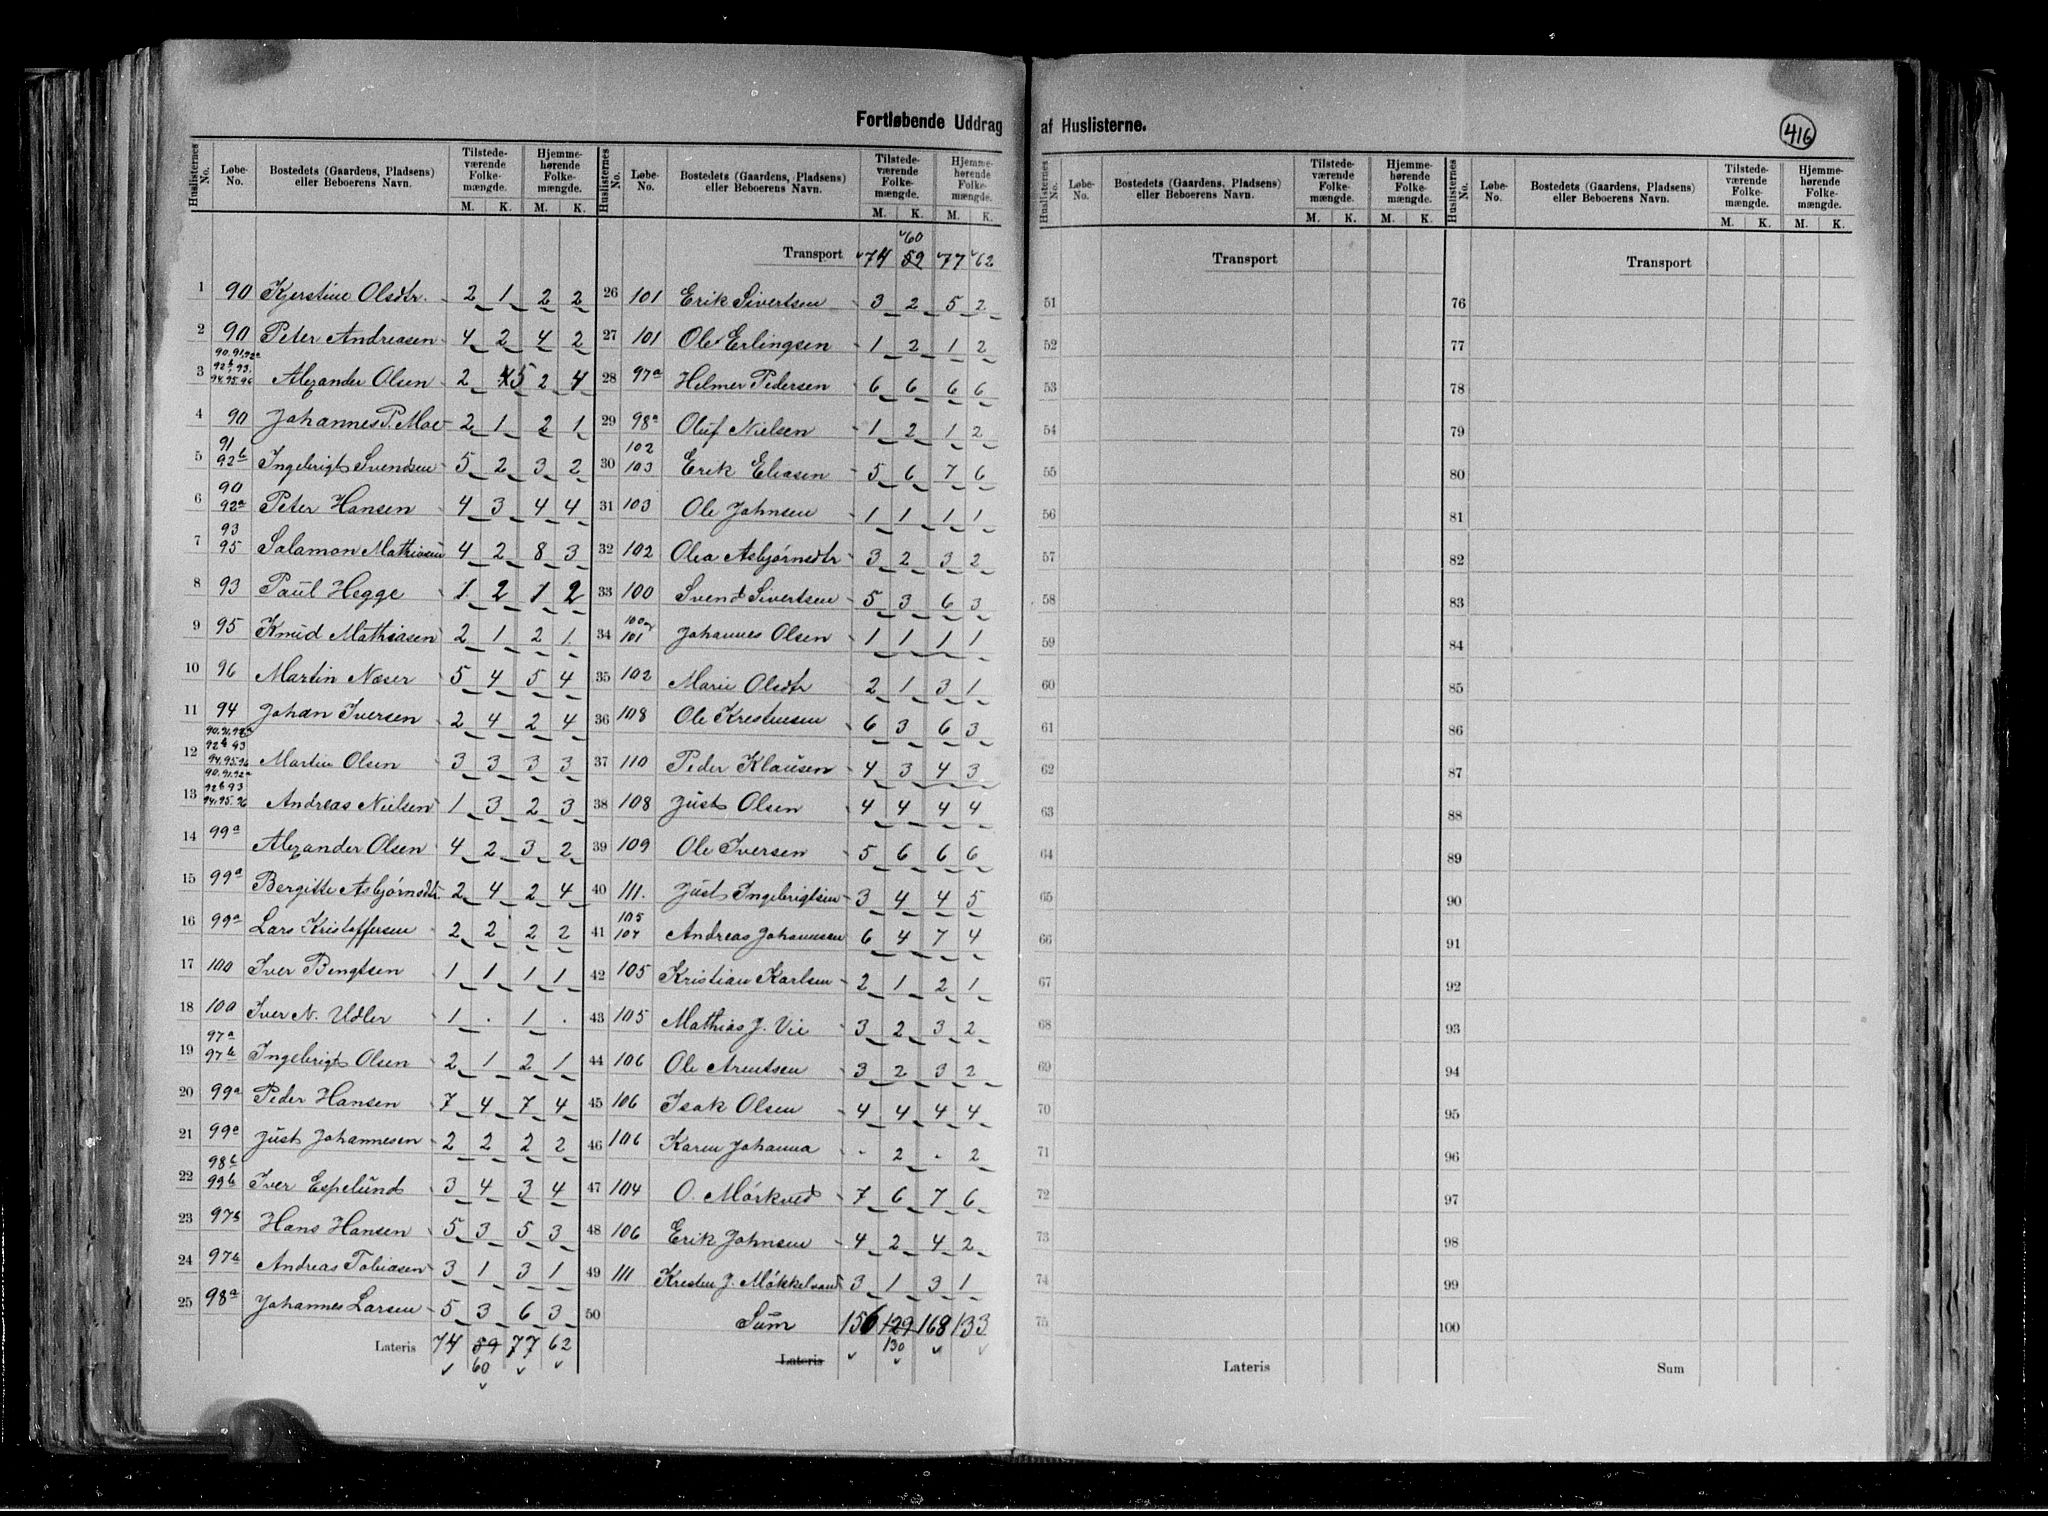 Fortløbende Uddrag af Huslisterne.
416
Huslisternes No. Løbe-No. Bostedets (Gaardens, Pladsens) eller Beboerens Navn. Tilstedeværende Folkemængde. M. K. Hjemmehørende Folkemængde. M. K.
1 90 Kjerstine Olsdtr. 2 1 2 2
2 90 Peter Andreasen 4 2 4 2
3 90.91.92a 92b.93. 94.95.96 Alexander Olsen 2 4 5 2 4
4 90 Johannes P. Moe 2 1 2 1
5 91 92b Ingebrigt Svendsen 5 2 3 2
6 90 92a Peter Hansen 4 3 4 4
7 93 95 Salamon Mathiasen 4 2 8 3
8 93 Paul Hegge 1 2 1 2
9 95 Knud Mathiasen 2 1 2 1
10 96 Martin Næser 5 4 5 4
11 94 Johan Iversen 2 4 2 4
12 90.91.92a 92b 93 94.95.96 Martin Olsen 3 3 3 3
13 90.91.92a 92b 93 94.95.96 Andreas Nielsen 1 3 2 3
14 99a Alexander Olsen 4 2 3 2
15 99a Bergitte Asbjørnsdtr. 2 4 2 4
16 99a Lars Kristoffersen 2 2 2 2
17 100 Iver Bengtsen 1 1 1 1
18 100 Iver N. Udler 1 . 1 .
19 97a 97b Ingebrigt Olsen 2 1 2 1
20 99a Peder Hansen 7 4 7 4
21 99a Just Johannesen 2 2 2 2
22 98b 99b Iver Espelund 3 4 3 4
23 97b Hans Hansen 5 3 5 3
24 97b Andreas Tobiasen 3 1 3 1
25 98a Johannes Larsen 5 3 6 3
Lateris 74 59 77 62
60
Huslisternes No. Løbe-No. Bostedets (Gaardens, Pladsens) eller Beboerens Navn. Tilstedeværende Folkemængde. M. K. Hjemmehørende Folkemængde. M. K.
60
Transport 74 59 77 62
26 101 Erik Sivertsen 3 2 5 2
27 101 Ole Erlingsen 1 2 1 2
28 97a Helmer Pedersen 6 6 6 6
29 98a Oluf Nielsen 1 2 1 2
30 102 103 Erik Eliasen 5 6 7 6
31 103 Ole Johnsen 1 1 1 1
32 102 Olea Asbjørnsdtr 3 2 3 2
33 100 Svend Sivertsen 5 3 6 3
34 100 101 Johannes Olsen 1 1 1 1
35 102 Marie Olsdtr 2 1 3 1
36 108 Ole Krestensen 6 3 6 3
37 110 Peder Klausen 4 3 4 3
38 108 Just Olsen 4 4 4 4
39 109 Ole Iversen 5 6 6 6
40 111. Just Ingebrigtsen 3 4 4 5
41 105 107 Andreas Johannsen 6 4 7 4
42 105 Kristian Karlsen 2 1 2 1
43 105 Mathias J. Vie 3 2 3 2
44 106 Ole Arentsen 3 2 3 2
45 106 Isak Olsen 4 4 4 4
46 106 Karen Johanna - 2 - 2
47 104 O. Mörkved 7 6 7 6
48 106 Erik Johnsen 4 2 4 2
49 111 Kresten J. Mökkelvand 3 1 3 1
50 Sum 156 129 168 133
130
Lateris
Huslisternes No. Løbe-No. Bostedets (Gaardens, Pladsens) eller Beboerens Navn. Tilstedeværende Folkemængde. M. K. Hjemmehørende Folkemængde. M. K.
Transport
51
52
53
54
55
56
57
58
59
60
61
62
63
64
65
66
67
68
69
70
71
72
73
74
75
Lateris
Huslisternes No. Løbe-No. Bostedets (Gaardens, Pladsens) eller Beboerens Navn. Tilstedeværende Folkemængde. M. K. Hjemmehørende Folkemængde. M. K.
Transport
76
77
78
79
80
81
82
83
84
85
86
87
88
89
90
91
92
93
94
95
96
97
98
99
100
Sum